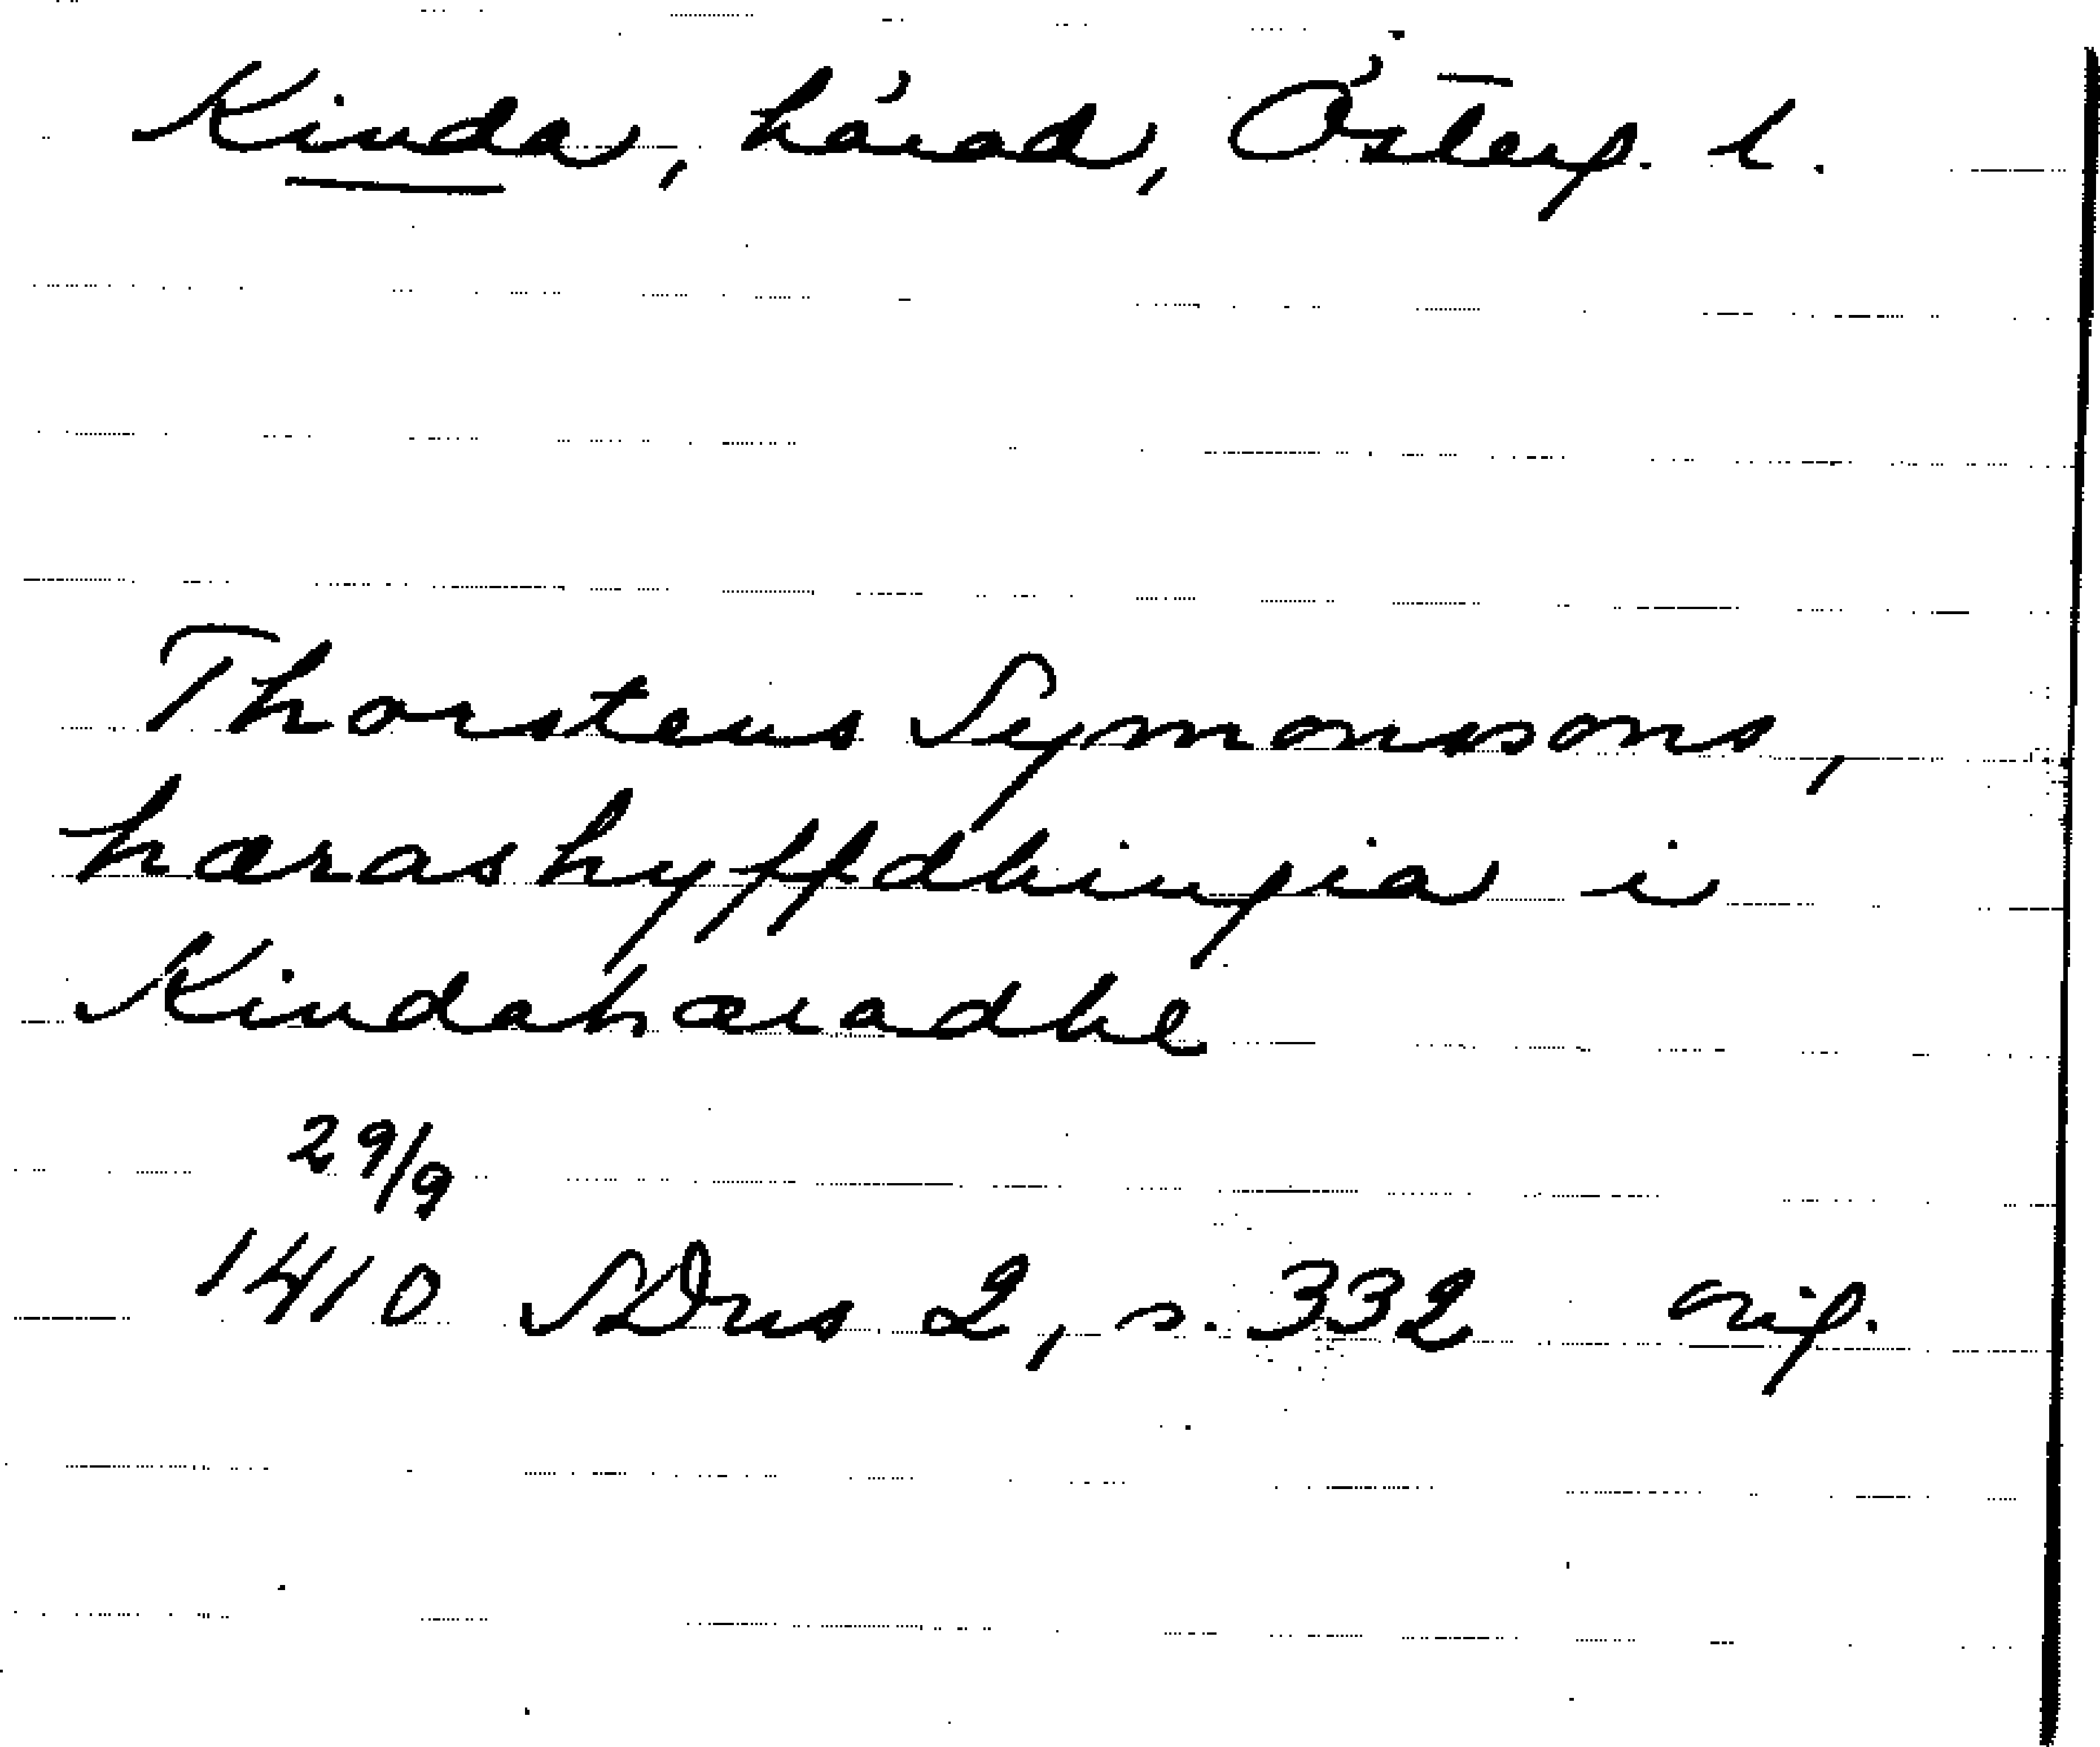 Kinda, härad, Österg. l.
Thorstens Symonssons,
hærashyffdhingia i
Kindahæradhe
29/9
1410 SDns 2, s. 332 orig.